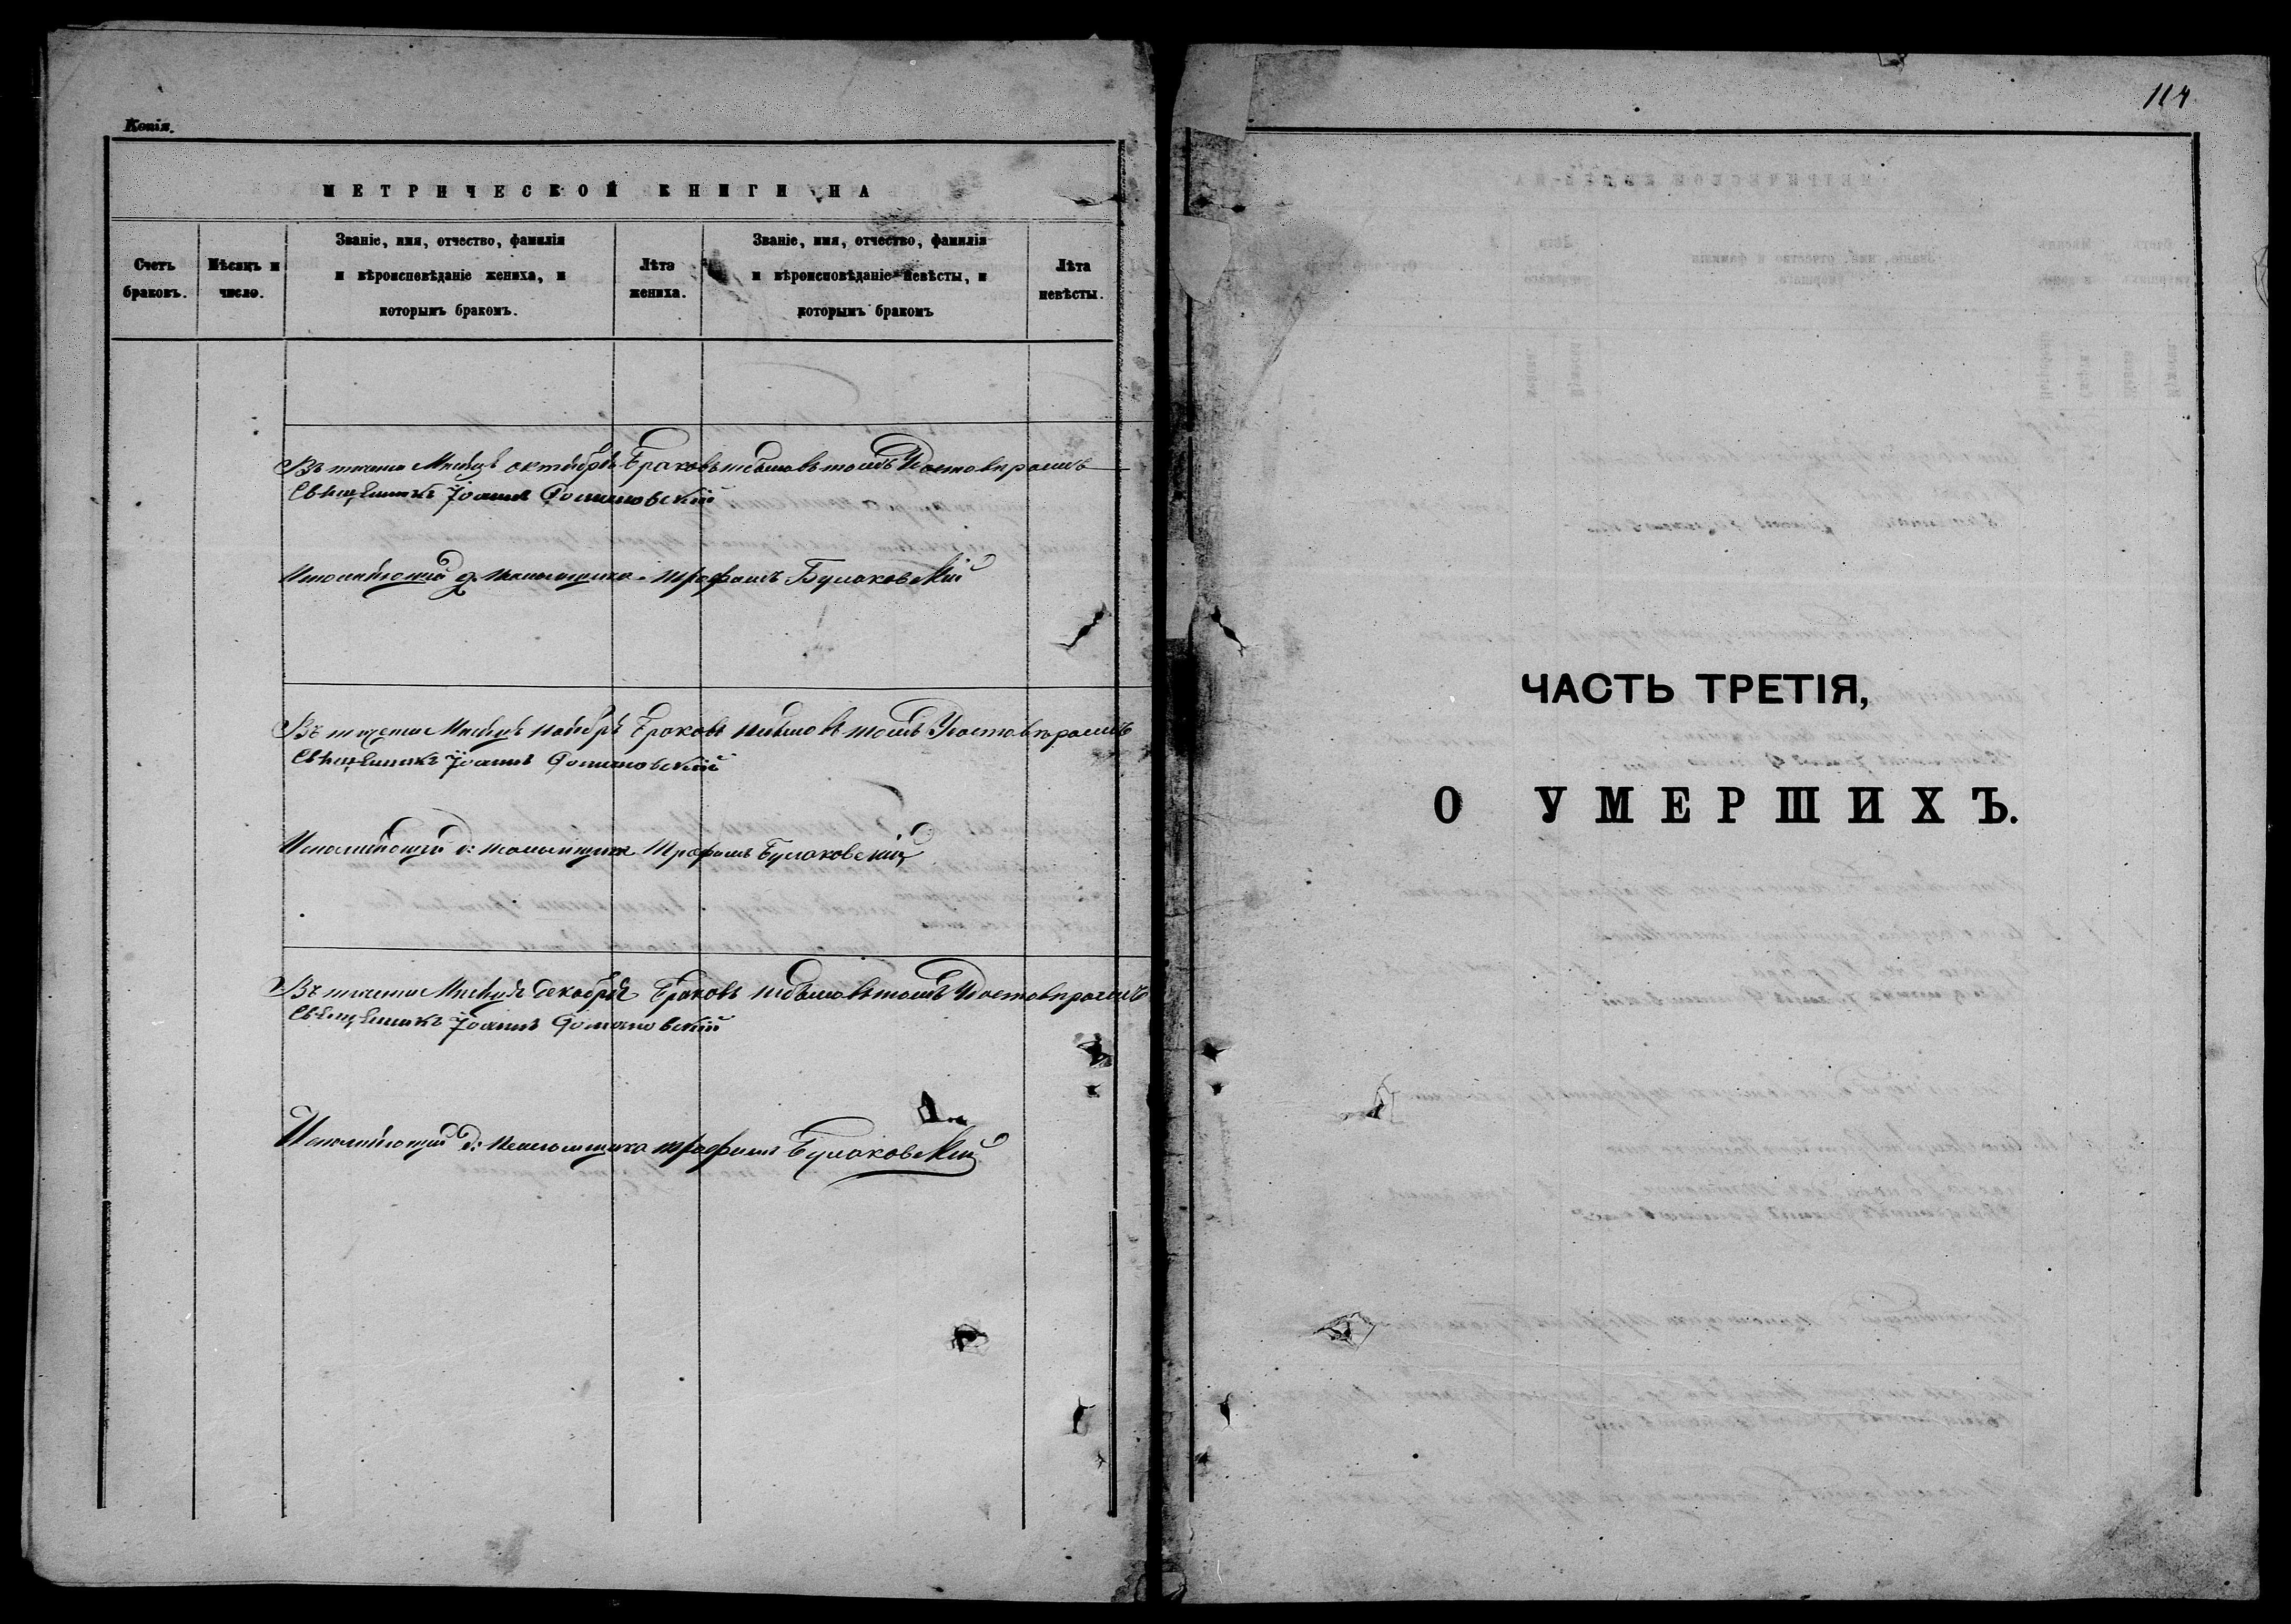 Копія.
МЕТРИЧЕСКОЙ КНИГИ НА
Счетъ
браковъ.
Мѣсяцъ и
число.
Званіе, имя, отчество, фамилія
и вѣроисповѣданіе жениха, и
которымъ бракомъ.
Лѣта
жениха.
Званіе, имя, отчество, фамилія
и вѣроисповѣданіе невѣсты, и
которымъ бракомъ
Лѣта
невѣсты.
Въ течение Месяцѣ октябрѣ Браковъ небыло въ томъ Удостовѣряемъ
Священникъ Іоаннъ Романовскій
Исполняющій д. псаломщика Трофимъ Булаковскій
Въ течение Месяцѣ ноябрѣ Браковъ небыло въ томъ Удостовѣряемъ
Священникъ Іоаннъ Романовскій
Исполняющій д: псаломщика Трофимъ Булаковскій
Въ течение Месяцѣ декабрѣ Браковъ небыло въ томъ Удостовѣряемъ
Священникъ Іоаннъ Романовскій
Исполняющій д: псаломщика Трофимъ Булаковскій
114
ЧАСТЬ ТРЕТІЯ,
О УМЕРШИХЪ.